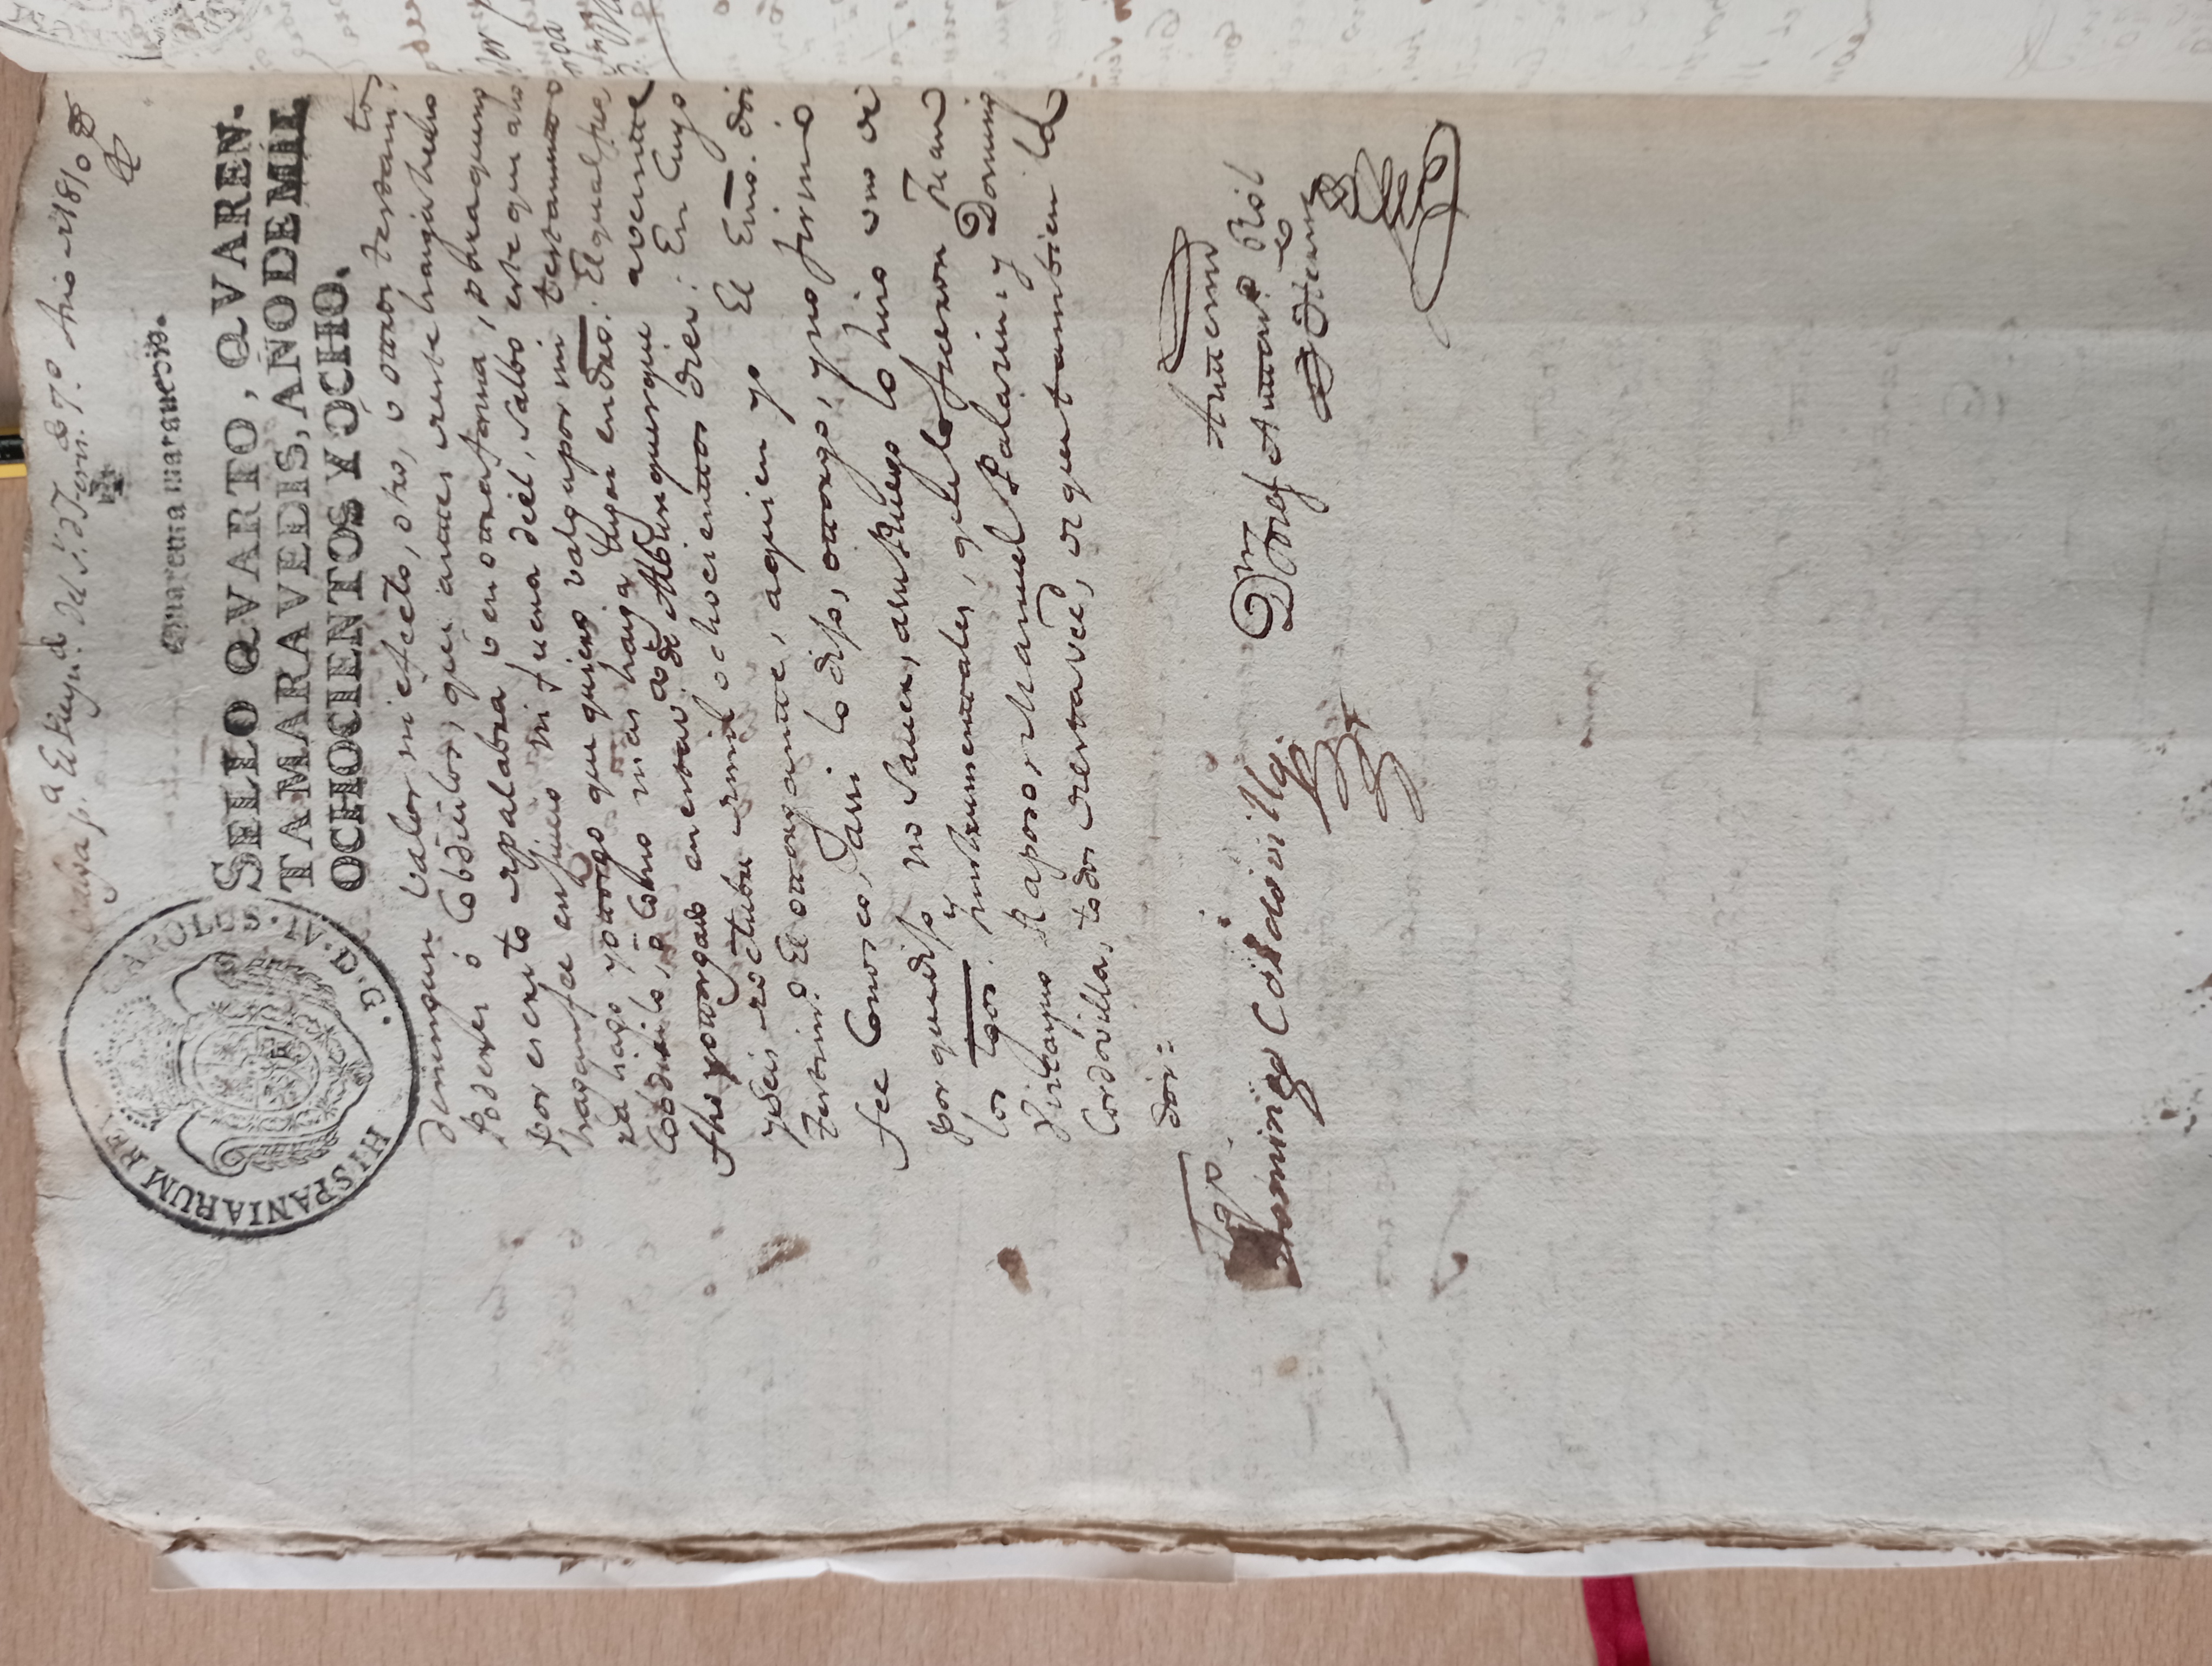 Valga p.ª El Reyn.do del S.r D Fern.do 7.º Año de 1810
HISPANIARUM REX CAROLUS·IV·D·G·
Quarenta marauedis.
SELLO QVARTO, QVAREN-
TA MARAVEDIS, AÑO DE MIL
OCHOCIENTOS Y OCHO.
deningun valor ni efecto, otro, ó ottros testam.tos
Poderes ó Cobdicilos, que anttes de este haiga hecho
por escrito de palabra ó en ottra forma, para que no
hagan fee en juicio ni fuera de él, salbo este que aho
ra hago y ottorgo que quiero valga por mi testamento
Cobdicilo, ó Como mas haiga lugar en dro: El qual fue
fho y ottorgado en esta v.ª de Alburquerque a veintte
y Seis de octubre de mil ochocienttos diez: En Cuyo
Testim.º El ottorgantte, a quien yo El Emo. doi
fee Conosco, assi lo dijo, ottorgo, y no firmó
por que dijo no Saver, a su Ruego lo hizo uno de
los tgos. Ynstrumenttales, que lo fueron Juan
Viscayno Raposo, Manuel Palarin, y Domingo
Cordovilla, todos de esta vecd, de que tambien la
doi:
Tgo
Domingo Cordovilla.
Anttemi
Dn Josef Antton.º Rol